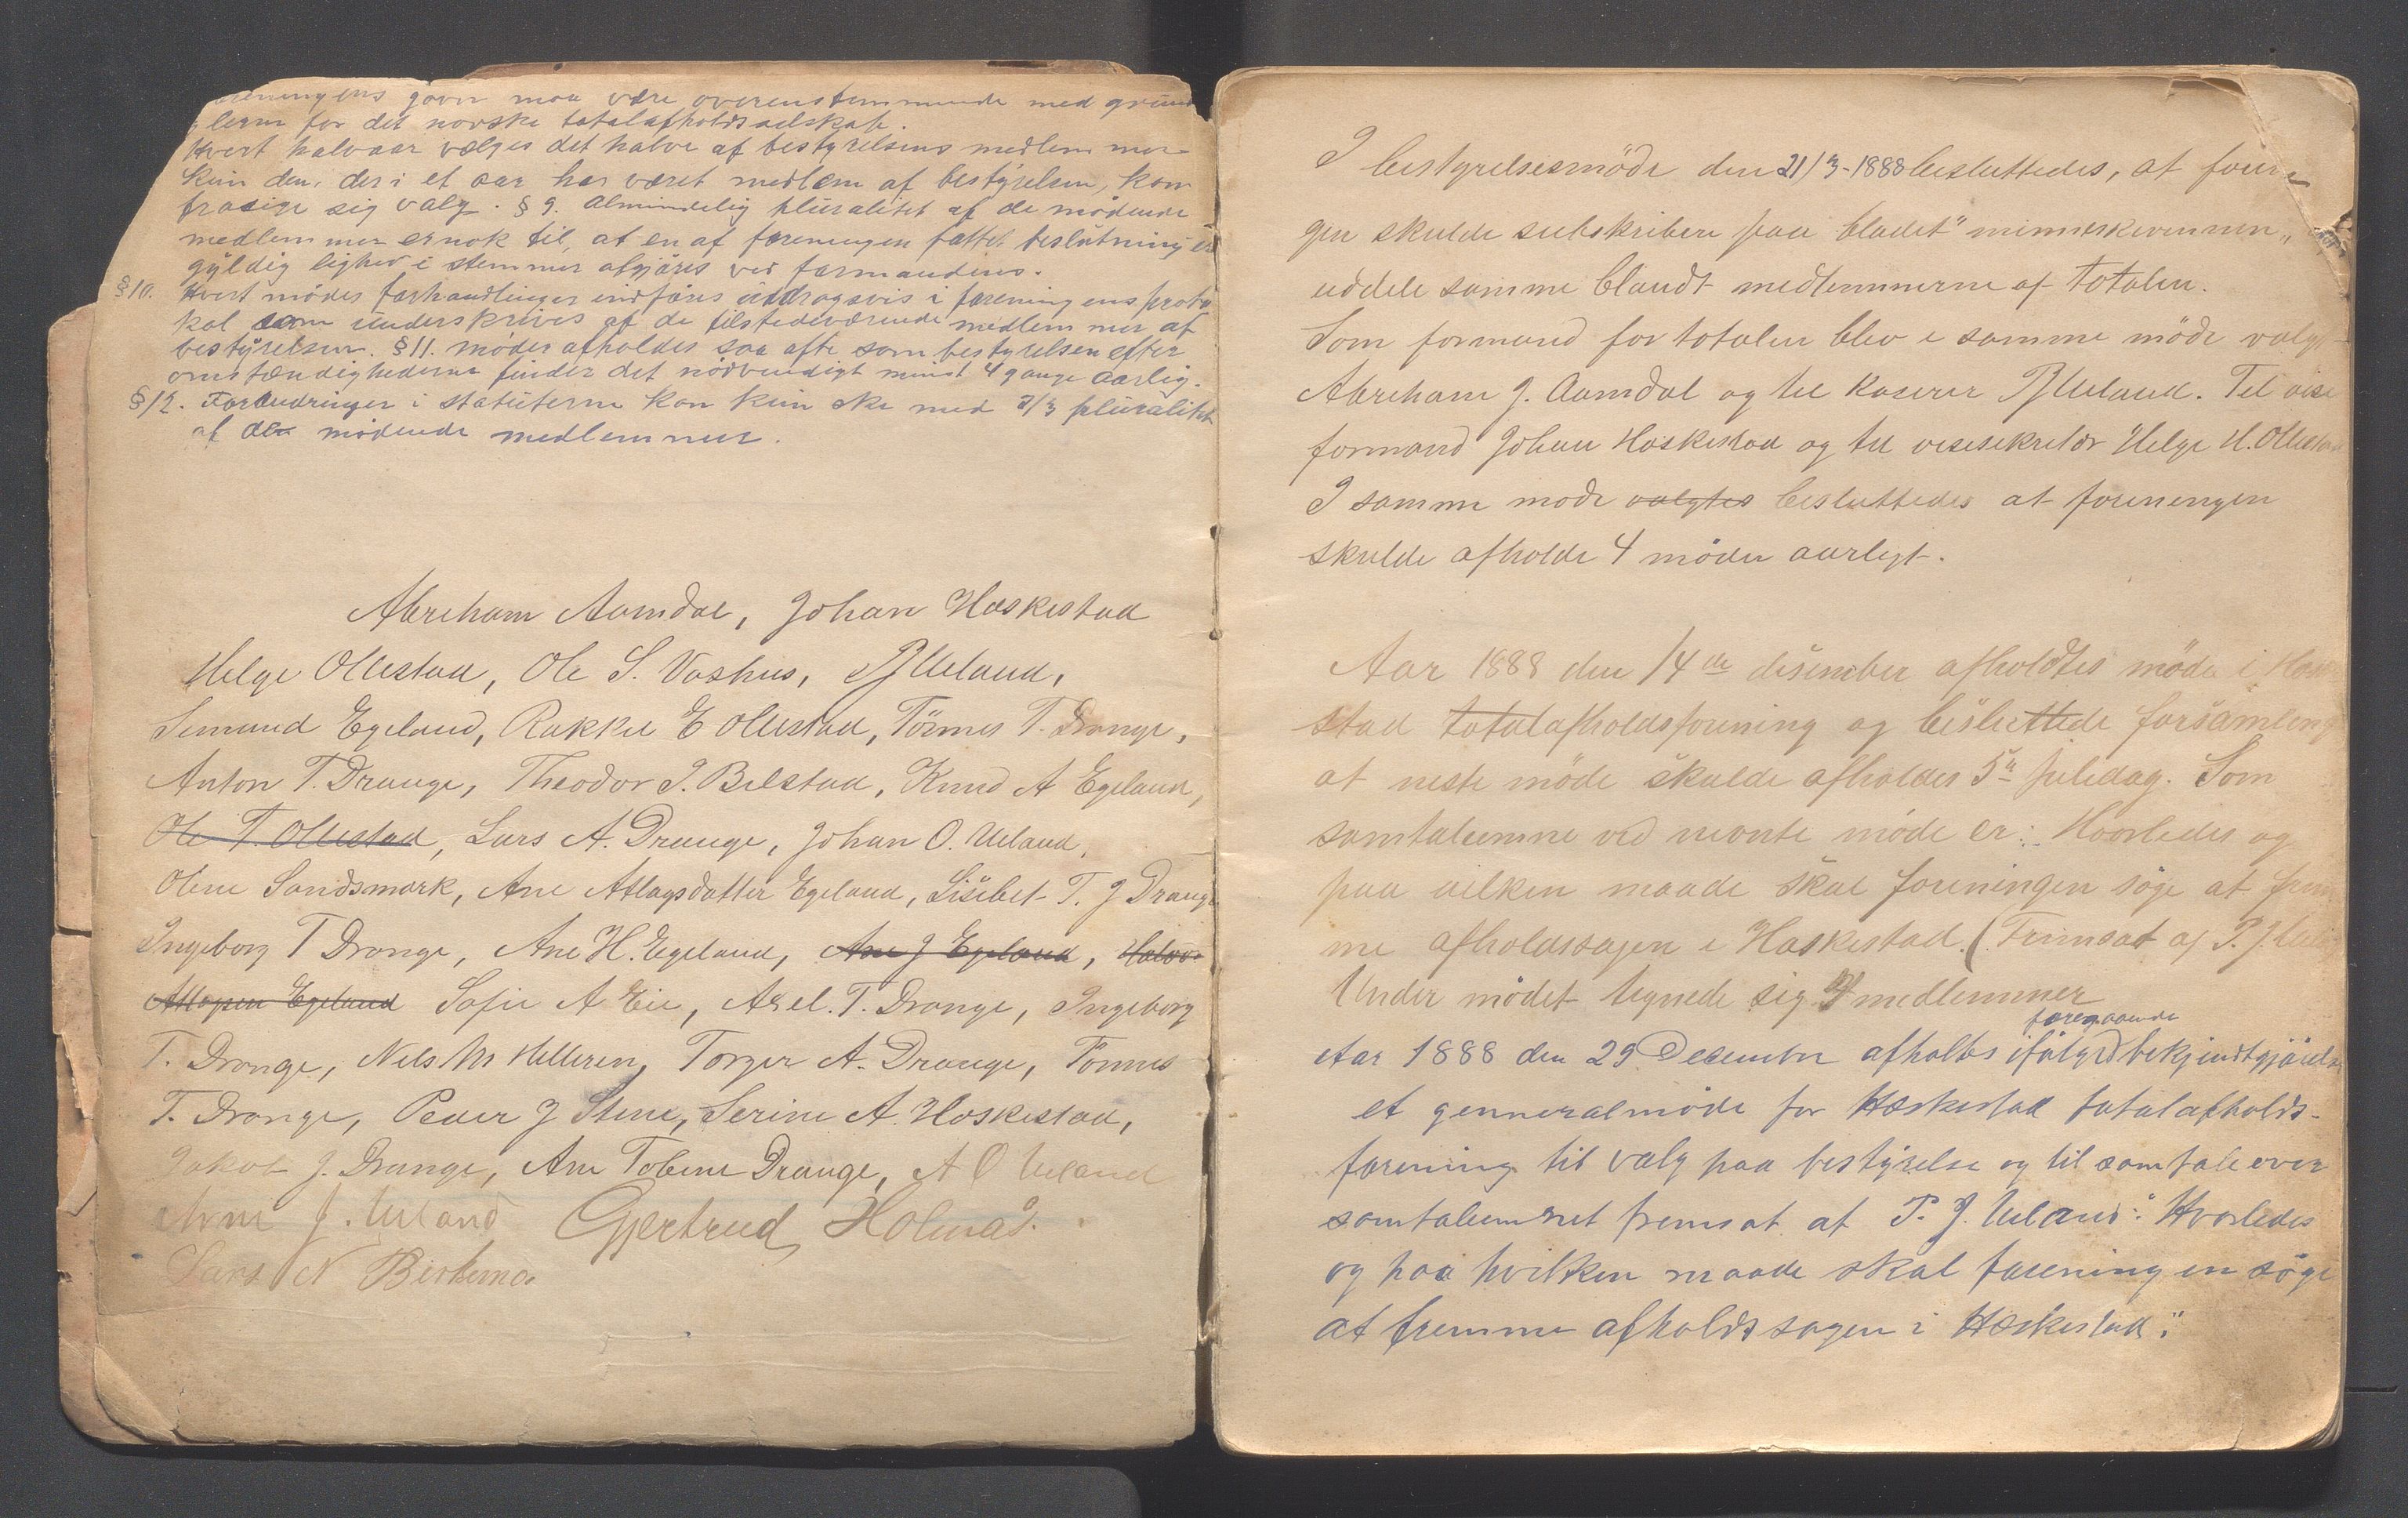 gavn maa være overensstemmende med grund
for det norske totalafholdsselskab.
Hvert halvaar vælges det halve af bestyrelsens medlemmer
kun den, der i et aar har været medlem af bestyrelsen, kan
frasige sig valg. § 9. Almindelig pluralitet af de mødende
medlemmer er nok til, at en af foreningen fattet beslutning er
gyldig lighed i stemmer afgjøres ved formandens.
§ 10. Hvert mødes forhandlinger indføres uddragsvis i foreningens proto
kol som underskrives af de tilstedeværende medlemmer af
bestyrelsen. § 11. møder afholdes saa ofte som bestyrelsen efter
omstændighederne finder det nødvendigt minst 4 gange aarlig.
§ 12. Forandringer i statuterne kan kun ske med 2/3 pluralitet
af de mødende medlemmer.
Abreham Aamdal, Johan Haskestad
Helge Ollestad, Ole S. Vashus, P J Ueland,
Semund Egeland, Rakkel E Ollestad, Tönnes T. Drange,
Anton T. Drange, Theodor J. Bilstad, Knud A Egeland,
Ole T. Ollestad, Lars A. Drange, Johan O. Ueland,
Olene Sandsmark, Ane Atlagsdatter Egeland, Lisebet T. J Drange
Ingeborg T Drange, Ane H. Egeland, Ane J Egeland, Halvor
Atlagsen Egeland Sofie A Eie, Axel. T. Drange, Ingeborg
T. Drange, Nels M Helleren, Torger A. Drange, Tönnes
T. Drange, Peder J Stene, Serine A. Haskestad,
Jakob J. Drange, Ane Tobene Drange, A O Ueland
Arne J. Ueland Gjertrud Holmas.
Lars N
I bestyrelsesmöde den 21/3-1888 besluttedes, at foren
gen skulde subskribere paa bladet "menneskevennen„ og
uddele samme blandt medlemmerne af Totalen.
Som formand for totalen blev i samme möde valgt
Abreham J. Aamdal og til kaserer P J Ueland. Til vise
formand Johan Haskestad og til visesekretær Helge H. Ollestad
I samme mode valgtes besluttedes at foreningen
skulde afholde 4 möder aarligt.
Aar 1888 den 14de desember afholdtes möde i Haske
stad totalafholdsforening og besluttede forsamling
at neste möde skulde afholdes 5te juledag. Som
samtaleemne ved nevnte möde er: Hvorledes og
paa vilken maade skal foreningen söge at frem
me afholdssagen i Haskestad. (Fremsat af P. J. Uelan
Under mödet tegnede sig 4 medlemmer
foregaaende
Aar 1888 den 29 Desember afholtes ifölge bekjendtgjörelse
et genneralmöde for Hæskestad totalafholds-
forening til valg paa bestyrelse og til samtale over
samtaleemnet fremsat af P. J. Ueland: "Hvorledes
og paa hvilken maade skal foreningen söge
at fremme afholdssagen i Hæskestad".